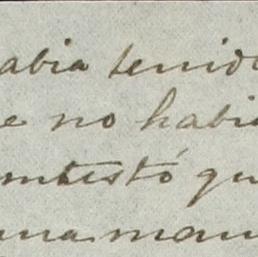 abia tenido
e no habia
ontestó qu
una man